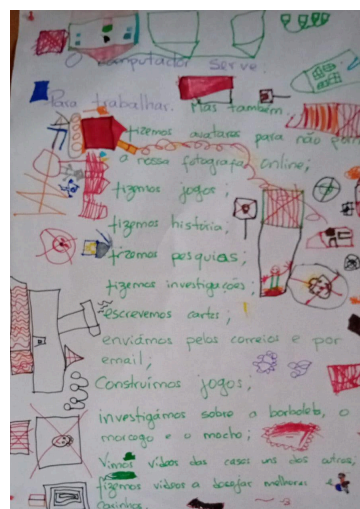 O computador serve:
Para trabalhar. Mas também:
fizemos avatares para não pôr
a nossa fotografia online;
fizemos jogos;
fizemos história;
fizemos pesquias;
fizemos investigações;
escrevemos cartas;
enviámos pelos correios e por
email;
Construímos jogos;
investigámos sobre a borboleta, o
morcego e o mocho;
Vimos vídeos das casas uns dos outros;
fizemos vídeos a desejar melhoras